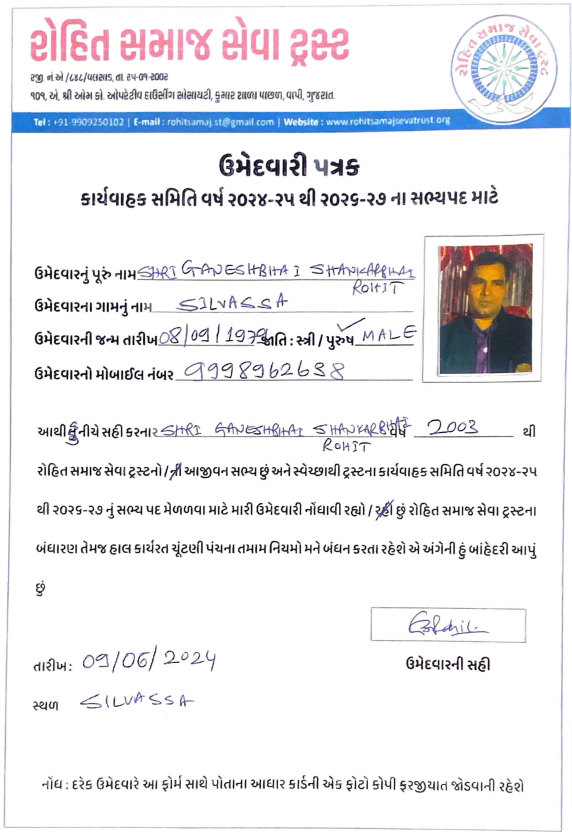 રોહિત સમાજ સેવા ટ્રસ્ટ
રજી નં એ /૬૮૮/વલસાડ, તા. ૨૫-૦૧-૨૦૦૨
૧૦૧, એ, શ્રી ઓમ કો. ઓપરેટીવ હાઉસીંગ સોસાયટી, કુમાર શાળા પાછળ, વાપી, ગુજરાત.
રોહિત સમાજ સેવા ટ્રસ્ટ
Tel : +91-9909250102 | E-mail : rohitsamaj.st@gmail.com | Website : www.rohitsamajsevatrust.org
ઉમેદવારી પત્રક
કાર્યવાહક સમિતિ વર્ષ ૨૦૨૪-૨૫ થી ૨૦૨૬-૨૭ ના સભ્યપદ માટે
ઉમેદવારનું પૂરું નામ SHRI GANESHBHAI SHANKARBHAI
ROHIT
ઉમેદવારના ગામનું નામ SILVASSA
ઉમેદવારની જન્મ તારીખ 08/09/1979 જાતિ : સ્ત્રી / પુરુષ MALE
ઉમેદવારનો મોબાઈલ નંબર 9998962638
આથી હું નીચે સહી કરનાર SHRI GANESHBHAI SHANKARBHAI વર્ષ 2003 થી
ROHIT
રોહિત સમાજ સેવા ટ્રસ્ટનો / ની આજીવન સભ્ય છું અને સ્વેચ્છાથી ટ્રસ્ટના કાર્યવાહક સમિતિ વર્ષ ૨૦૨૪-૨૫
થી ૨૦૨૬-૨૭ નું સભ્ય પદ મેળળવા માટે મારી ઉમેદવારી નોંધાવી રહ્યો / રહી છું રોહિત સમાજ સેવા ટ્રસ્ટના
બંધારણ તેમજ હાલ કાર્યરત ચૂંટણી પંચના તમામ નિયમો મને બંધન કરતા રહેશે એ અંગેની હું બાંહેદરી આપું
છું
તારીખ: 09/06/2024
ઉમેદવારની સહી
સ્થળ SILVASSA
નોંધ : દરેક ઉમેદવારે આ ફોર્મ સાથે પોતાના આધાર કાર્ડની એક ફોટો કોપી ફરજીયાત જોડવાની રહેશે